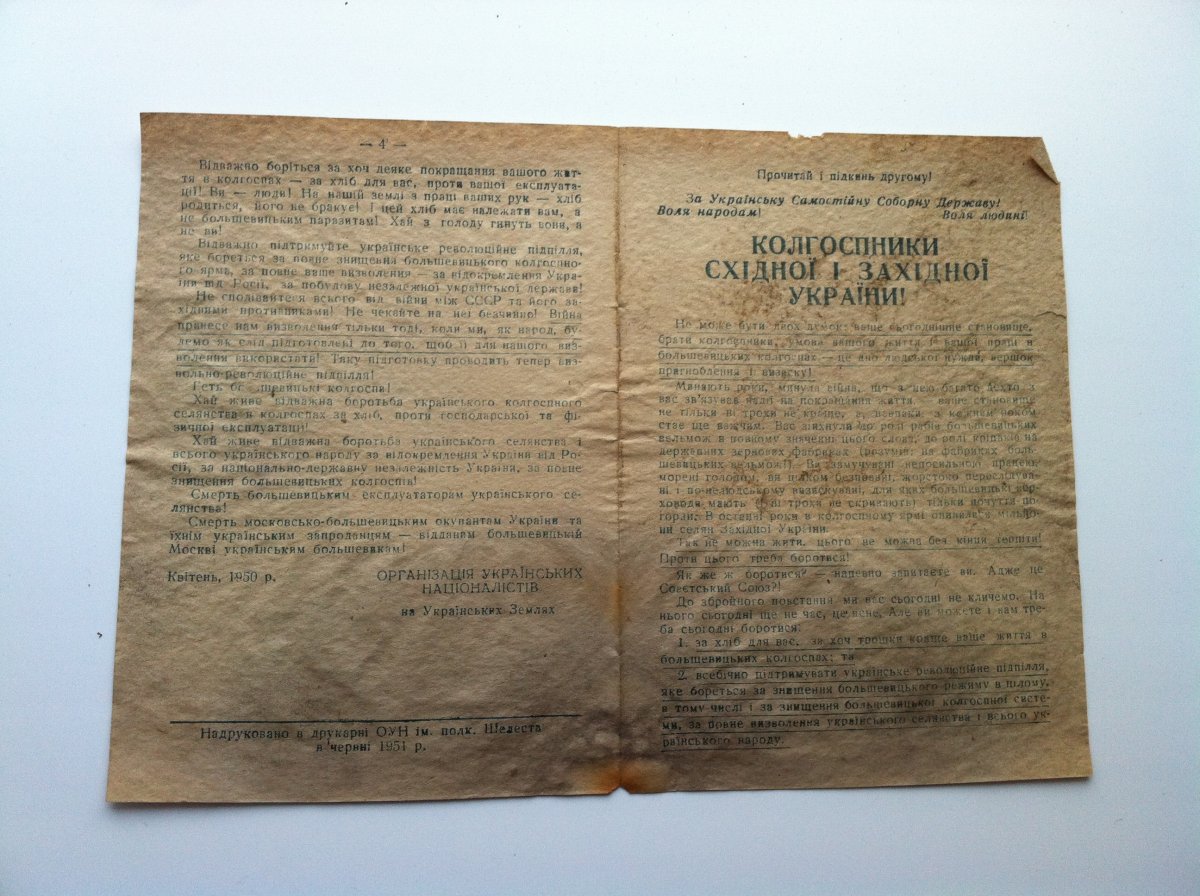 — 4 —
Відважно боріться за хоч деяке покращання вашого жит-
тя в колгоспах — за хліб для вас, проти вашої експлуата-
ції! Ви — люди! На нашій землі з праці ваших рук — хліб
родиться, його не бракує! І цей хліб має належати вам, а
не большевицьким паразитам! Хай з голоду гинуть вони, а
не ви!
Відважно підтримуйте українське революційне підпілля,
яке бореться за повне знищення большевицького колгоспно-
го ярма, за повне ваше визволення — за відокремлення Укра-
їни від Росії, за побудову незалежної української держави!
Не сподівайтеся всього від війни між СССР та його за-
хідними противниками! Не чекайте на неї безчинно! Війна
принесе нам визволення тільки тоді, коли ми, як народ, бу-
демо як слід підготовлені до того, щоб її для нашого виз-
волення використати! Таку підготовку проводить тепер виз-
вольно-революційне підпілля!
Геть большевицькі колгоспи!
Хай живе відважна боротьба українського колгоспного
селянства в колгоспах за хліб, проти господарської та фі-
зичної експлуатації!
Хай живе відважна боротьба українського селянства і
всього українського народу за відокремлення України від Ро-
сії, за національно-державну незалежність України, за повне
знищення большевицьких колгоспів!
Смерть большевицьким експлуататорам українського се-
лянства!
Смерть московсько-большевицьким окупантам України та
їхнім українським запроданцям — відданим большевицькій
Москві українським большевикам!
Квітень, 1950 р.
ОРГАНІЗАЦІЯ УКРАЇНСЬКИХ
НАЦІОНАЛІСТІВ
на Українських Землях
Надруковано в друкарні ОУН ім. полк. Шелеста
в червні 1951 р.
Прочитай і підкинь другому!
За Українську Самостійну Соборну Державу!
Воля народам! Воля людині!
КОЛГОСПНИКИ
СХІДНОЇ І ЗАХІДНОЇ
УКРАЇНИ!
Не може бути двох думок: ваше сьогоднішнє становище,
брати колгоспники, умови вашого життя і вашої праці в
большевицьких колгоспах — це дно людської нужди, вершок
пригноблення і визиску!
Минають роки, минула війна, що з нею багато дехто з
вас зв'язував надії на покращання життя, ваше становище
не тільки ні трохи не краще, а, навпаки, з кожним роком
стає ще важчим. Вас зіпхнули до ролі рабів большевицьких
вельмож в повному значенні цього слова, до ролі кріпаків на
державних зернових фабриках (розумій: на фабриках боль-
шевицьких вельмож!). Ви замучувані непосильною працею,
морені голодом, ви цілком безправні, жорстоко переслідува-
ні і по-нелюдському визискувані, для яких большевицькі вер-
ховоди мають (і ні трохи не скривають) тільки почуття по-
горди. В останні роки в колгоспному ярмі опинилися мільйо-
ни селян Західної України.
Так не можна жити, цього не можна без кінця терпіти!
Проти цього треба боротися!
Як же ж боротися? — напевно запитаєте ви. Адже це
Совєтський Союз?!
До збройного повстання ми вас сьогодні не кличемо. На
нього сьогодні ще не час, це ясне. Але ви можете і вам тре-
ба сьогодні боротися:
1. за хліб для вас, за хоч трошки краще ваше життя в
большевицьких колгоспах; та
2. всебічно підтримувати українське революційне підпілля,
яке бореться за знищення большевицького режиму в цілому,
в тому числі і за знищення большевицької колгоспної систе-
ми, за повне визволення українського селянства і всього ук-
раїнського народу.